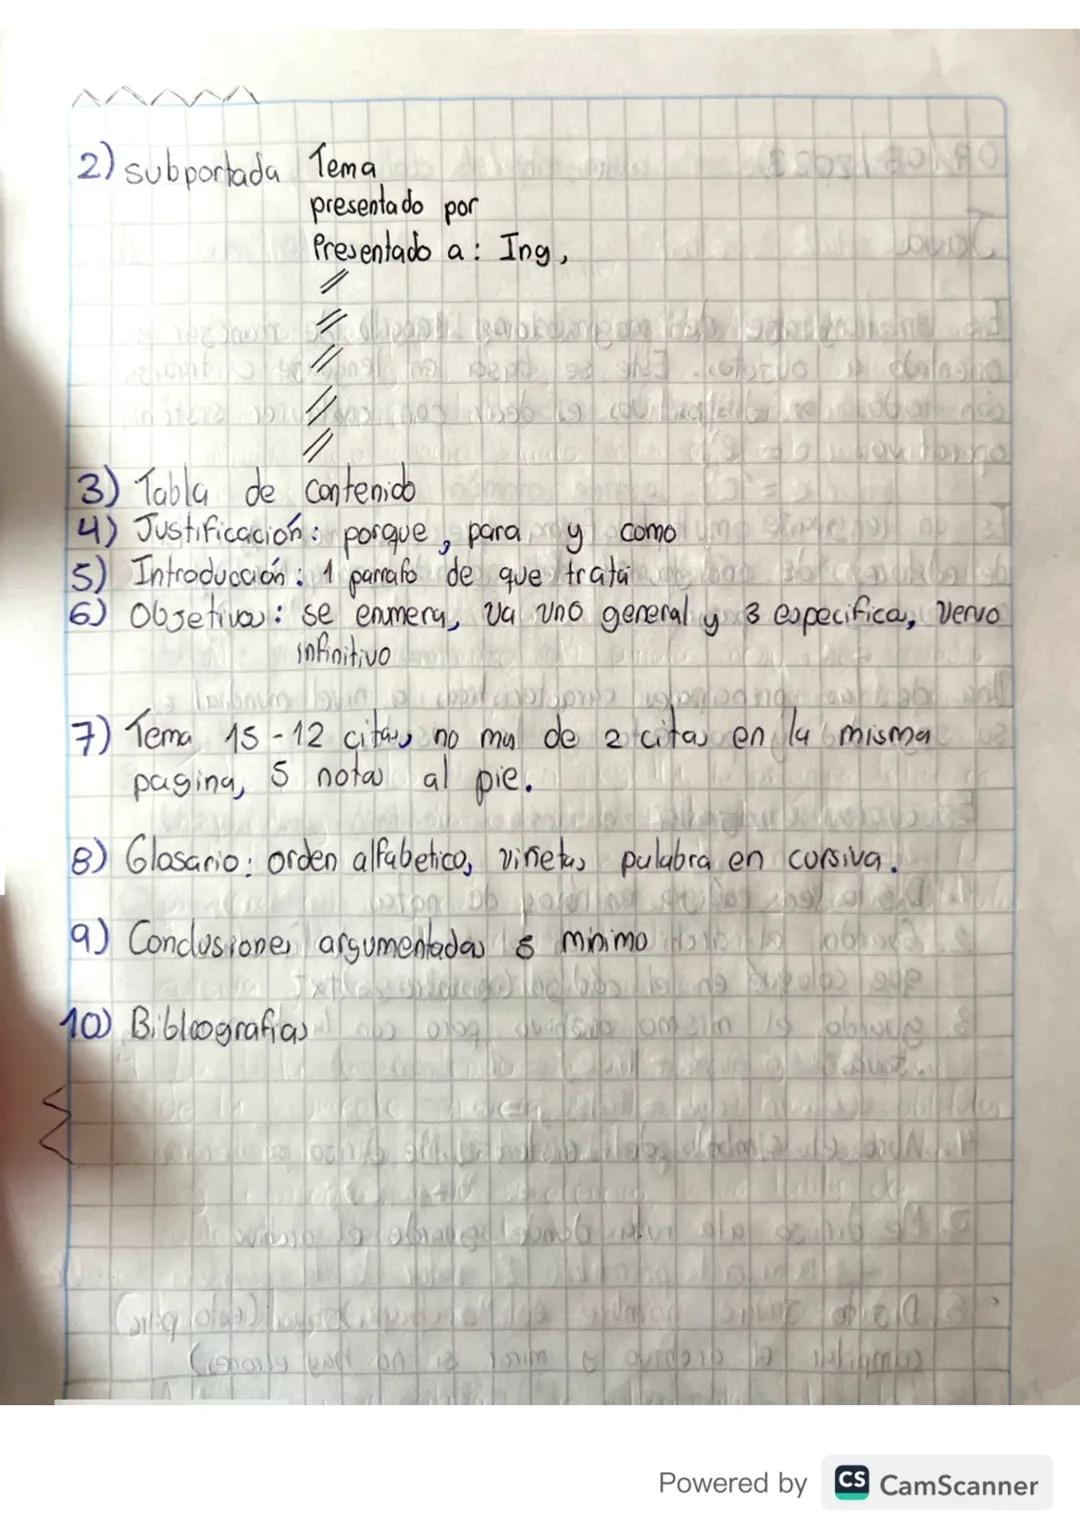 2) subportada Tema
presentado por
Presentado a: Ing,
3) Tabla de contenido
4) Justificación: porque, para y como
5) Introducción: 1 parrafo de que trata
6) Objetivos: se enmera, va uno general y 3 especifica, vervo
infinitivo
7) Tema 15-12 citas no mas de 2 citas en la misma
pagina, 5 notas al pie.
8) Glosario: orden alfabetico, viñetas palabra en cursiva.
9) Conclusiones argumentadas 5 minimo
10) Bibliografias
Powered by CS CamScanner